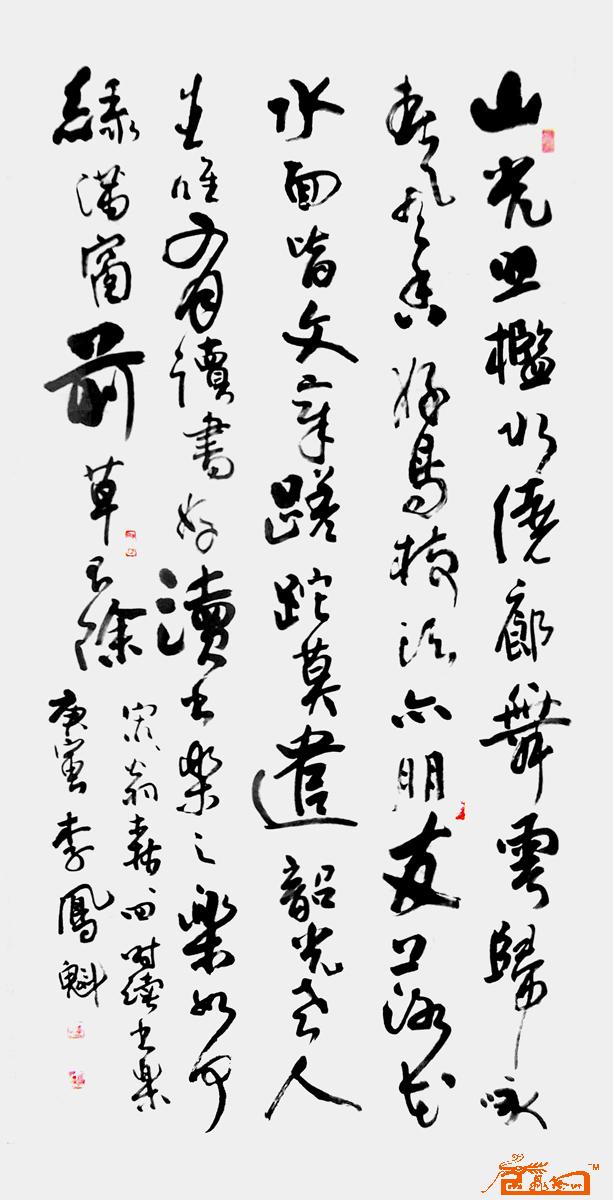 山光照檻水繞廊舞雩歸詠
春風香好鳥枝頭亦朋友落花
水面皆文章蹉跎莫遣韶光老人
生唯有讀書好讀书樂之樂如何
綠滿窗前草不除
宋翁森四时讀书樂
庚寅李鳳魁